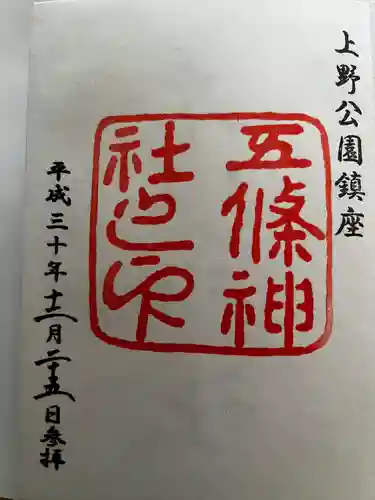 上野公園鎮座
五條神
社之印
平成三十年十二月二十五日参拝